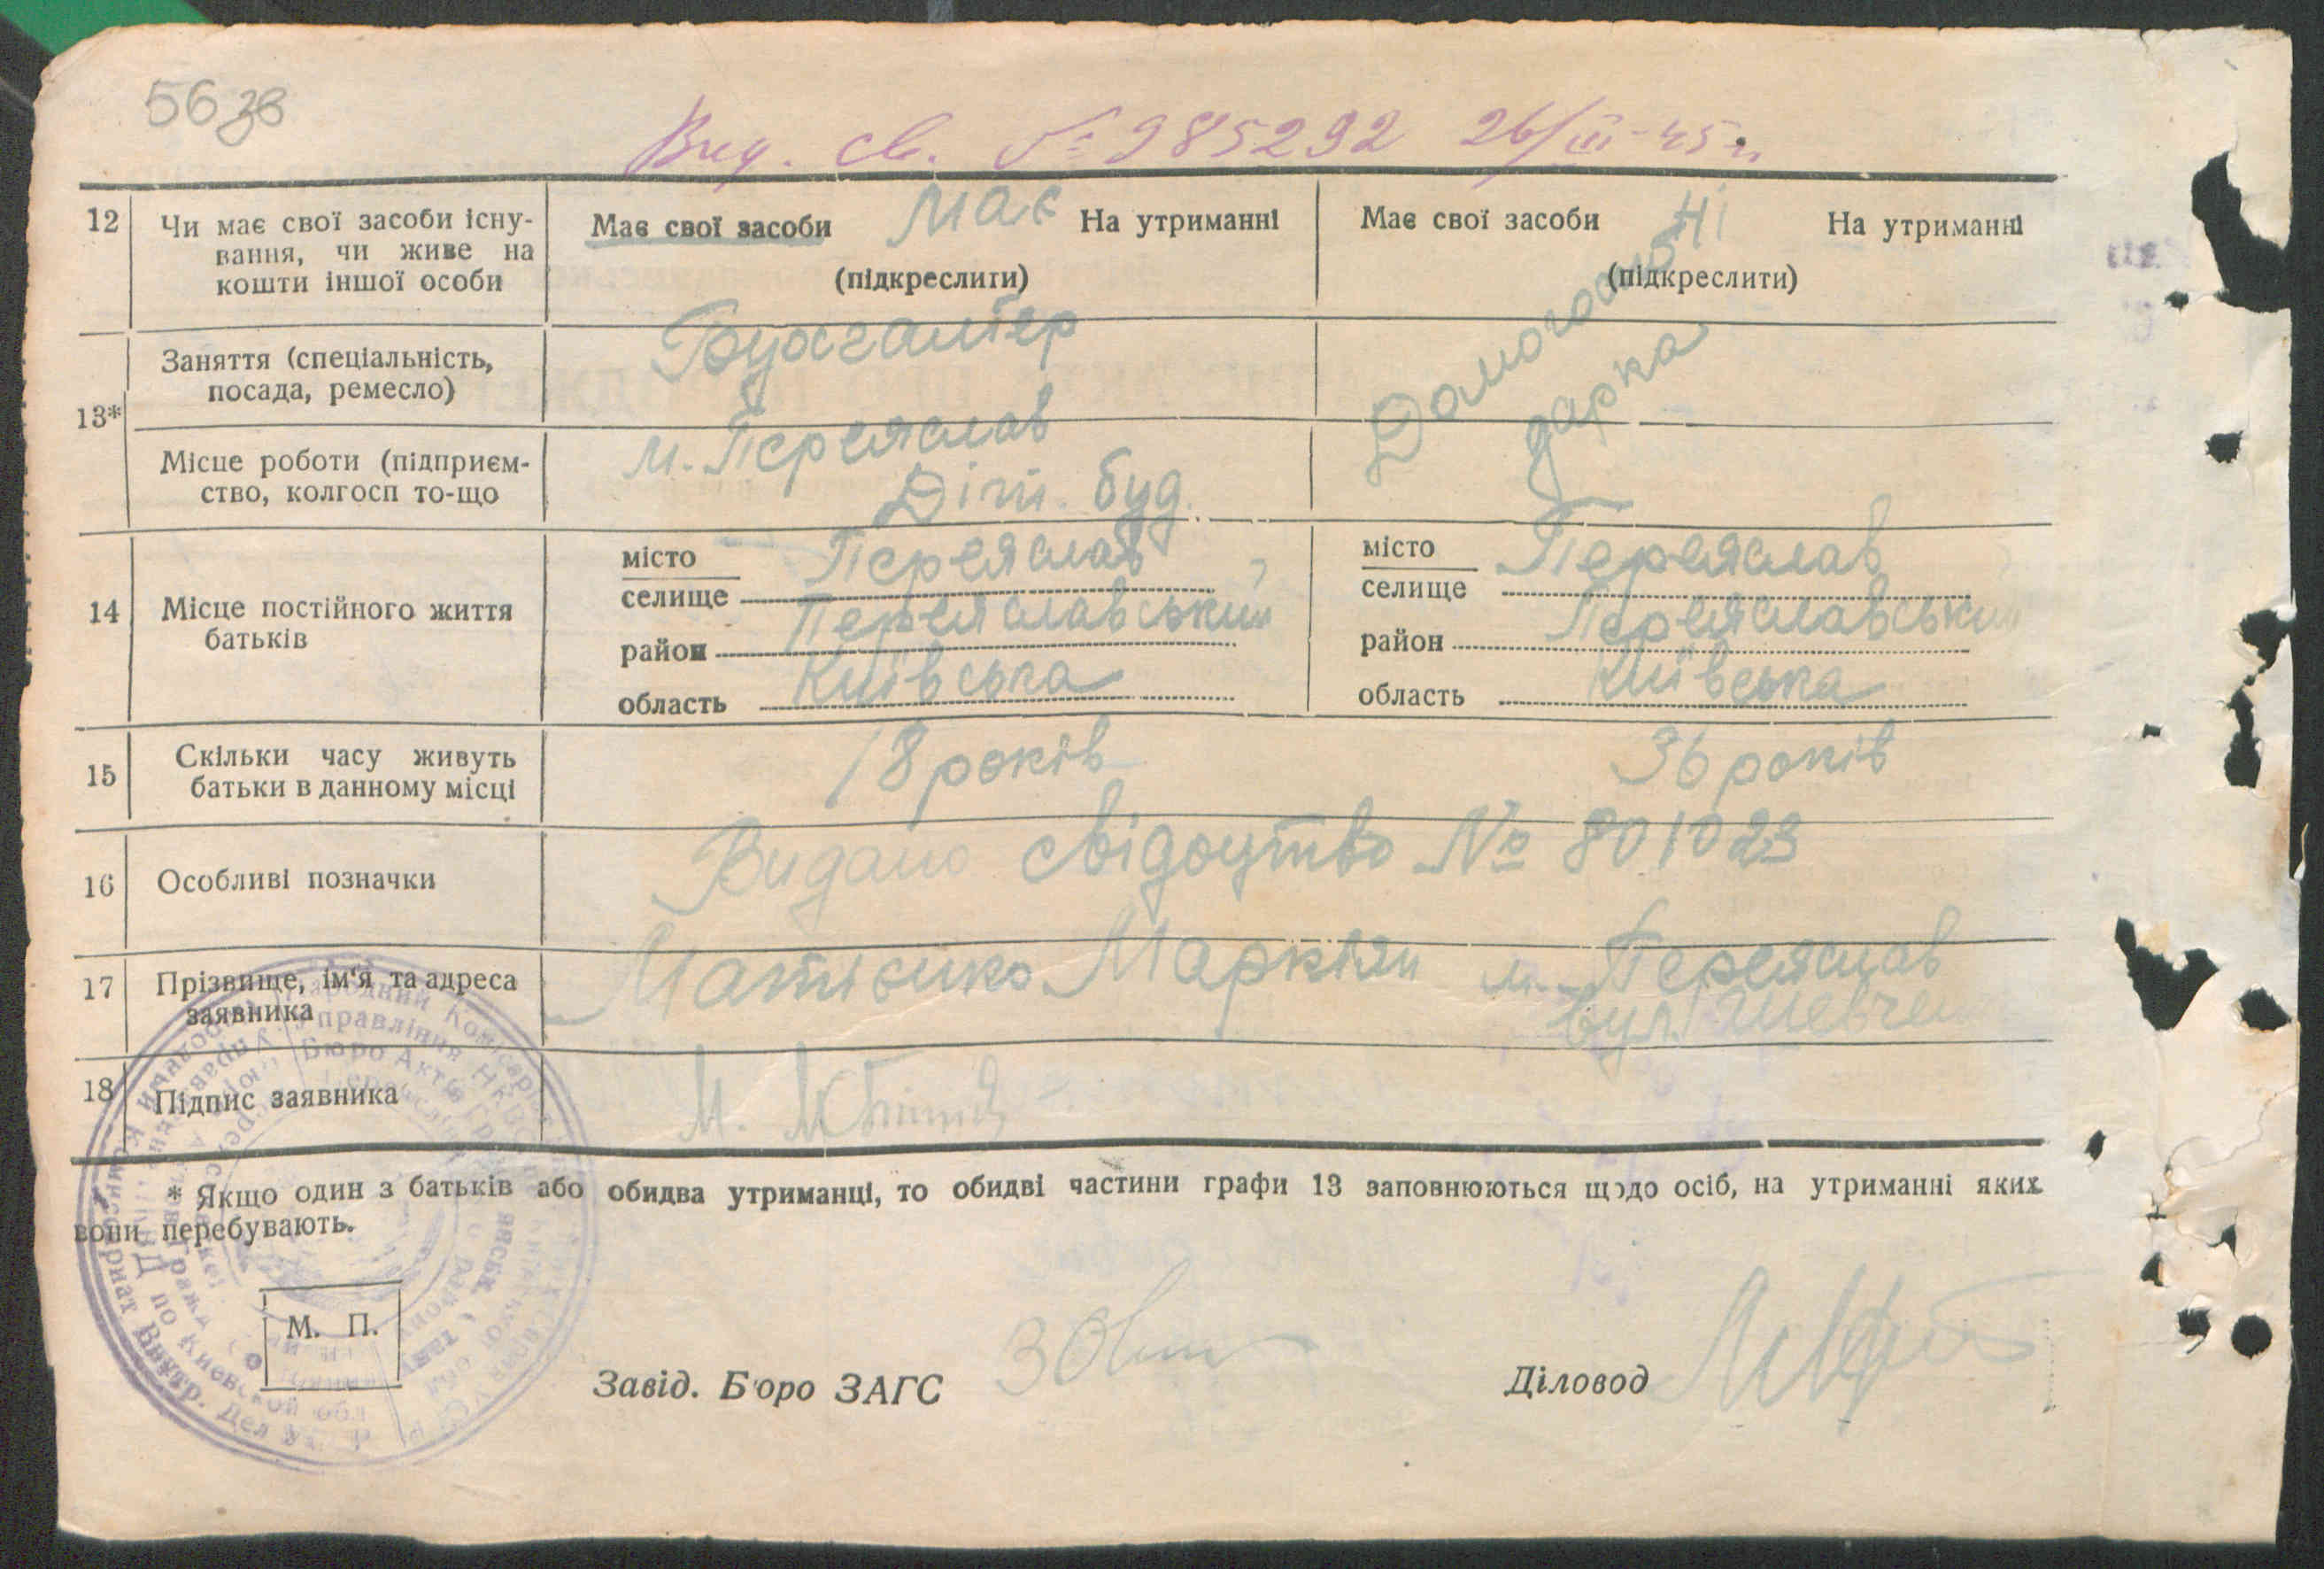 56 зв
Вид. св. № 985292 26/III-45 г.
12 Чи має свої засоби існу-
вання, чи живе на
кошти іншої особи
Має свої засоби має На утриманні
(підкреслити)
Має свої засоби ні На утриманні
(підкреслити)
13*
Заняття (спеціальність,
посада, ремесло)
Бухгалтер
Домогоспо
дарка
Місце роботи (підприєм-
ство, колгосп то-що
м. Переяслав
Діт. буд.
14 Місце постійного життя
батьків
місто
селище Переяслав
район Переяславський
область Київська
місто
селище Переяслав
район Переяславський
область Київська
15 Скільки часу живуть
батьки в данному місці
18 років
36 років
16 Особливі позначки
Видано свідоцтво № 801023
17 Прізвище, ім'я та адреса
заявника
Маркіян м. Переяслав
вул. Шевчен
18 Підпис заявника
М.
* Якщо один з батьків або обидва утриманці, то обидві частини графи 13 заповнюються щодо осіб, на утриманні яких
вони перебувають.
М. П.
Завід. Бюро ЗАГС
Діловод